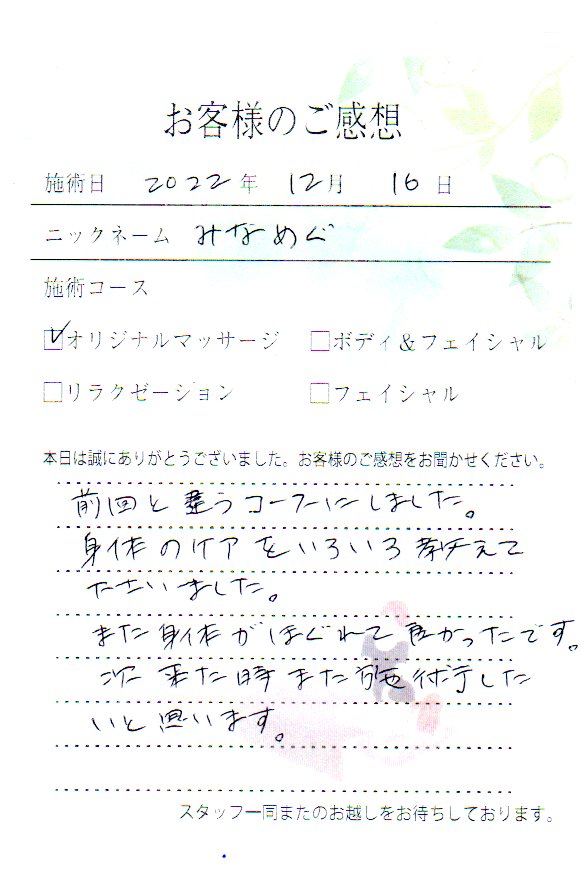 お客様のご感想
施術日 2022年 12月 16日
ニックネーム みなめぐ
施術コース
☑オリジナルマッサージ □ボディ＆フェイシャル
□リラクゼーション □フェイシャル
本日は誠にありがとうございました。お客様のご感想をお聞かせください。
前回と違うコースにしました。
身体のケアをいろいろ教えて
ださいました。
また身体がほぐれて良かったです。
次来た時また施術した
いと思います。
スタッフ一同またのお越しをお待ちしております。